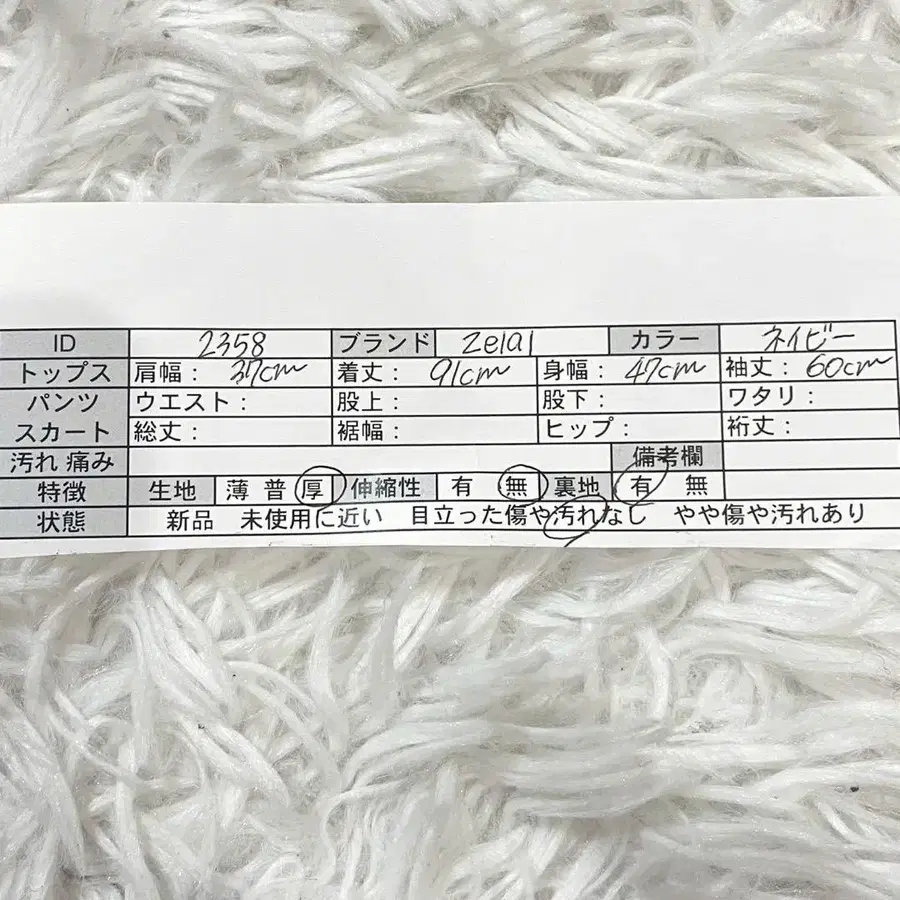 ID 2358 ブランド Zelal カラー ネイビー
トップス 肩幅： 37cm 着丈： 91cm 身幅： 47cm 袖丈： 60cm
パンツ ウエスト： 股上： 股下： ワタリ：
スカート 総丈： 裾幅： ヒップ： 裄丈：
汚れ 痛み 備考欄
特徴 生地 薄 普 厚 伸縮性 有 無 裏地 有 無
状態 新品 未使用に近い 目立った傷や汚れなし やや傷や汚れあり